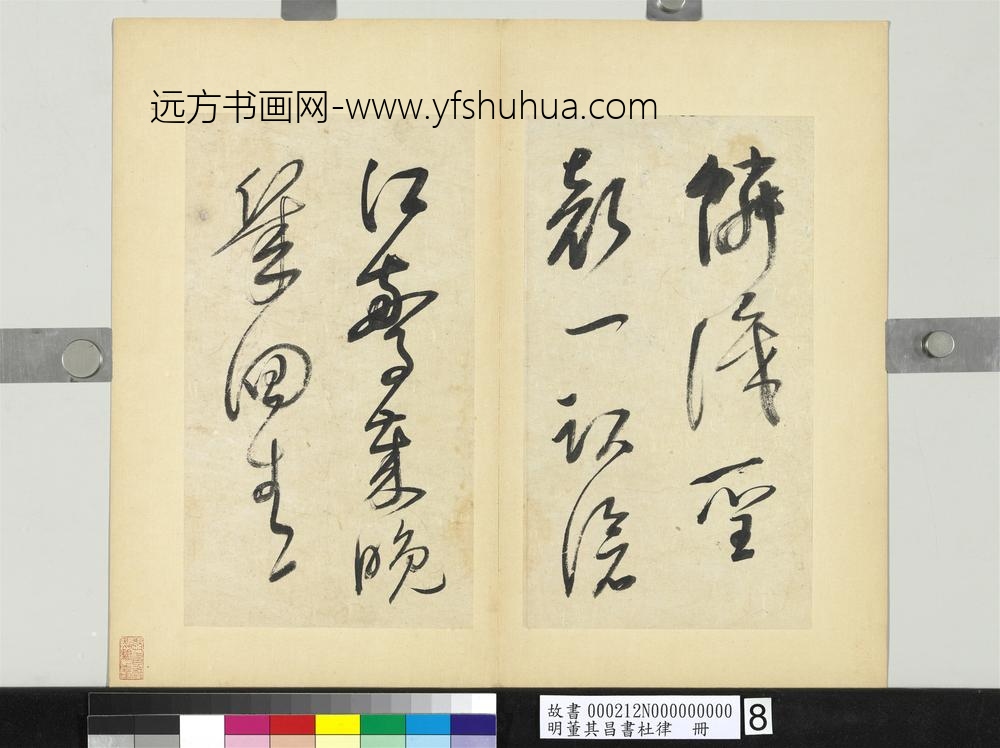 远方书画网-www.yfshuhua.com
鱗識聖
顏一臥滄
江驚歲晚
幾回青
故書 000212N000000000
明董其昌書杜律 冊
8